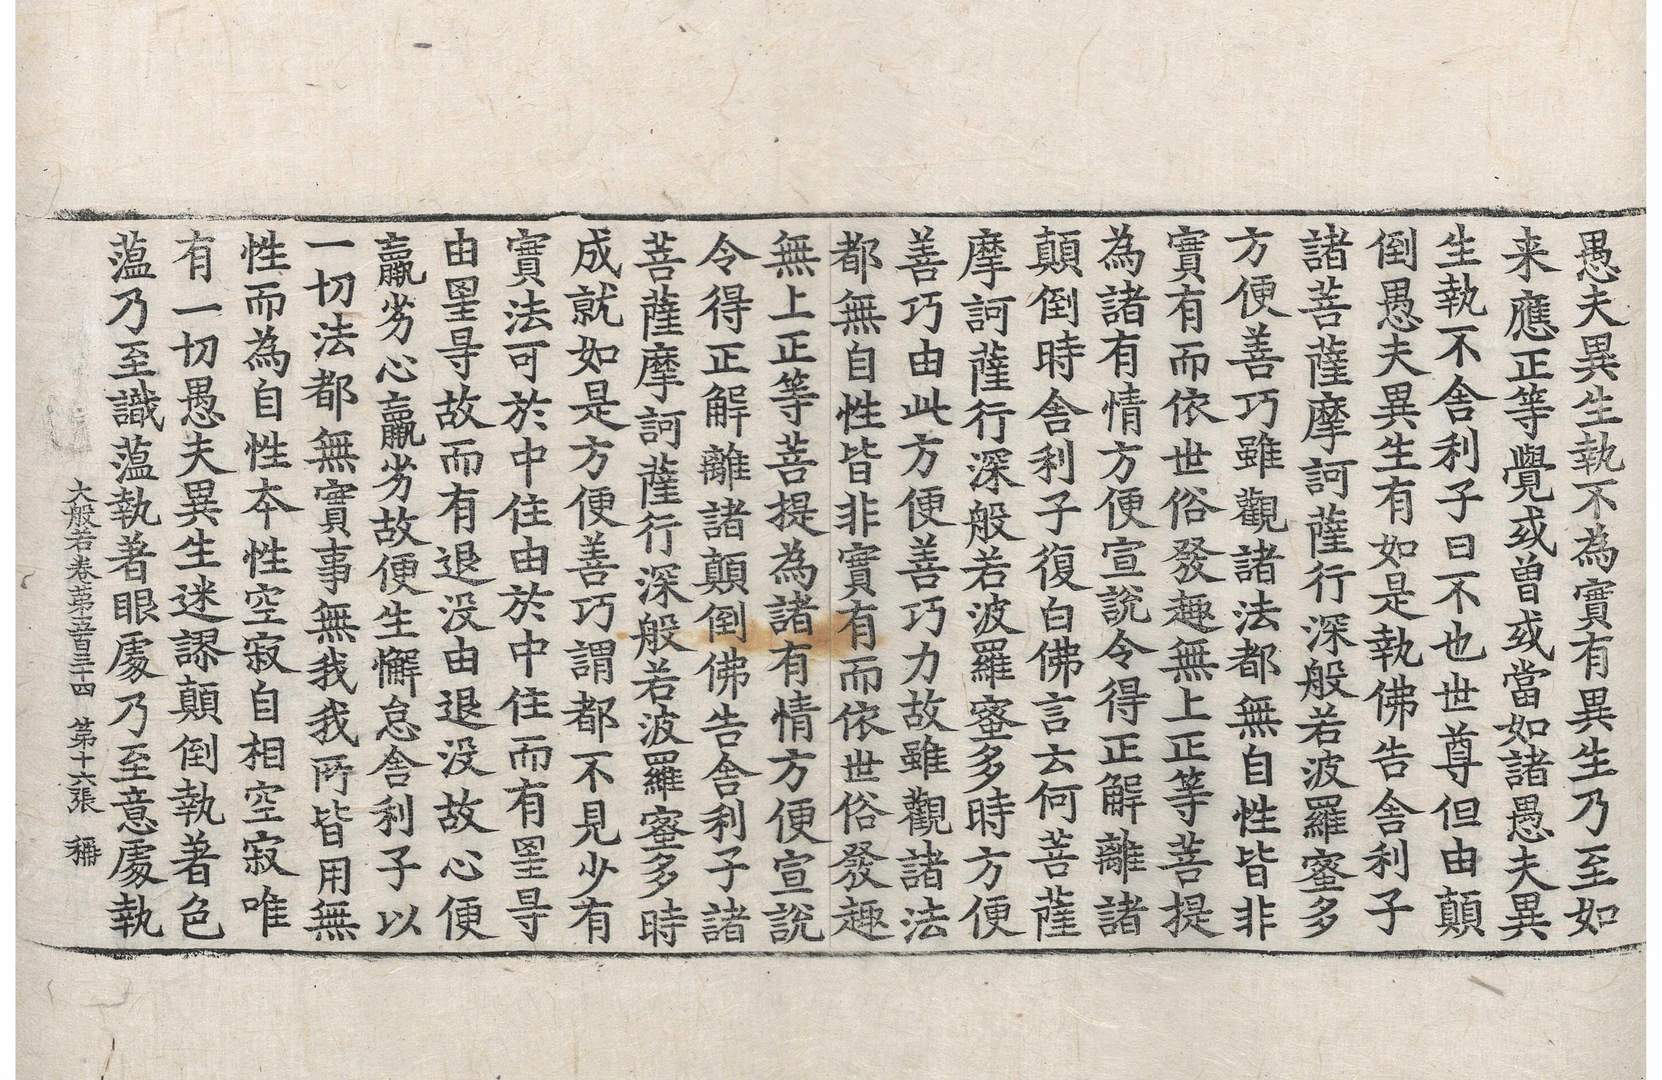 愚夫異生執不為實有異生乃至如
来應正等覺或曽或當如諸愚夫異
生執不舎利子曰不也世尊但由顛
倒愚夫異生有如是執佛告舎利子
諸菩薩摩訶薩行深般若波羅蜜多
方便善巧雖觀諸法都無自性皆非
實有而依世俗發趣無上正等菩提
為諸有情方便宣說令得正解離諸
顛倒時舎利子復白佛言云何菩薩
摩訶薩行深般若波羅蜜多時方便
善巧由此方便善巧力故雖觀諸法
都無自性皆非實有而依世俗發趣
無上正等菩提為諸有情方便宣說
令得正解離諸顛倒佛告舎利子諸
菩薩摩訶薩行深般若波羅蜜多時
成就如是方便善巧謂都不見少有
實法可於中住由於中住而有罣㝵
由罣㝵故而有退没由退没故心便
羸劣心羸劣故便生懈怠舎利子以
一切法都無實事無我我所皆用無
性而為自性夲性空寂自相空寂唯
有一切愚夫異生迷謬顛倒執著色
蘊乃至識蘊執著眼處乃至意處執
大般若卷第五百三十四　第十六張　稱